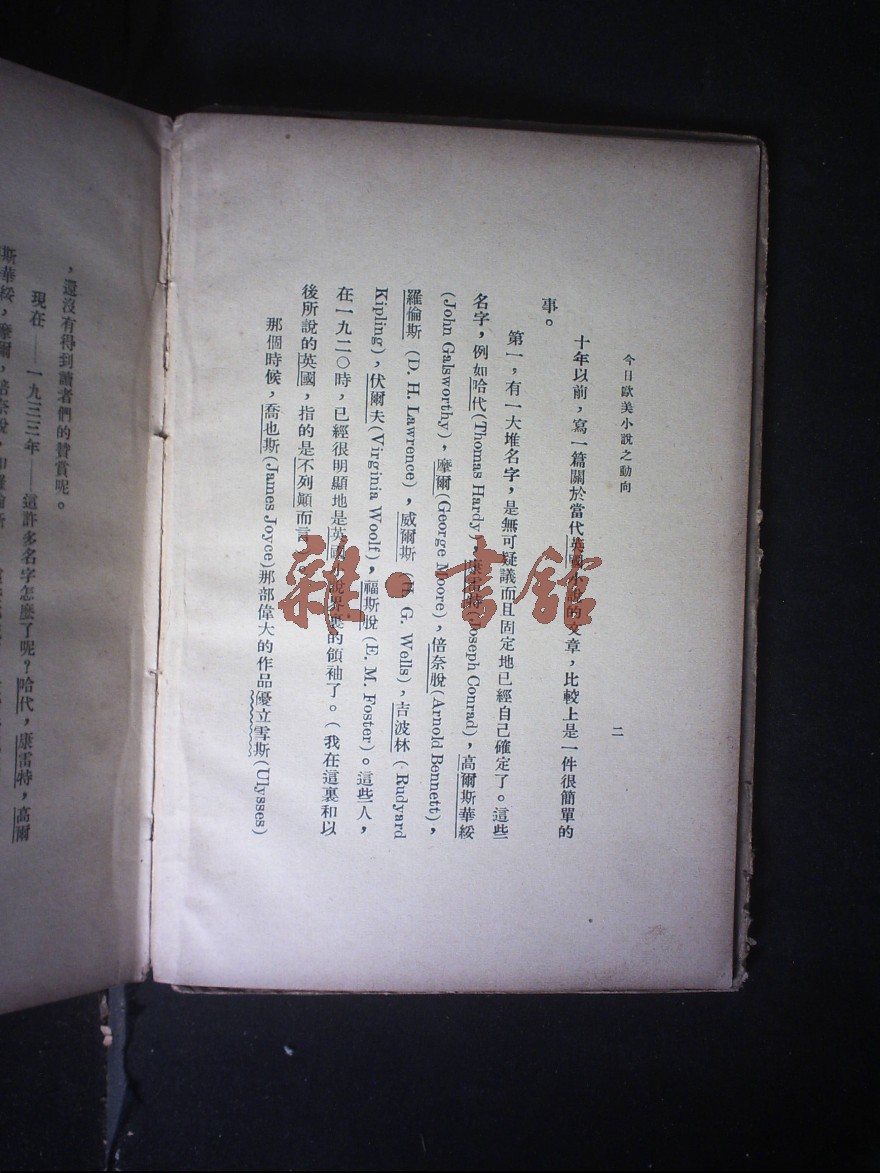 今日歐美小說之動向
二
十年以前，寫一篇關於當代英國小說的文章，比較上是一件很簡單的
事。
第一，有一大堆名字，是無可疑議而且固定地已經自己確定了。這些
名字，例如哈代(Thomas Hardy)，康雷特(Joseph Conrad)，高爾斯華綏
(John Galsworthy)，摩爾(George Moore)，倍奈脫(Arnold Bennett)，
羅倫斯 (D. H. Lawrence)，威爾斯 (H. G. Wells)，吉波林 (Rudyard
Kipling)，伏爾夫(Virginia Woolf)，福斯脫(E. M. Foster)。這些人，
在一九二〇時，已經很明顯地是英國小說界裏的領袖了。(我在這裏和以
後所說的英國，指的是不列顛而言
那個時候，喬也斯(James Joyce)那部偉大的作品優立雪斯(Ulysses)
，還沒有得到讀者們的贊賞呢。
現在——一九三三年——這許多名字怎麼了呢？哈代，康雷特，高爾
斯華綏，摩爾，倍奈脫，
雜·書館